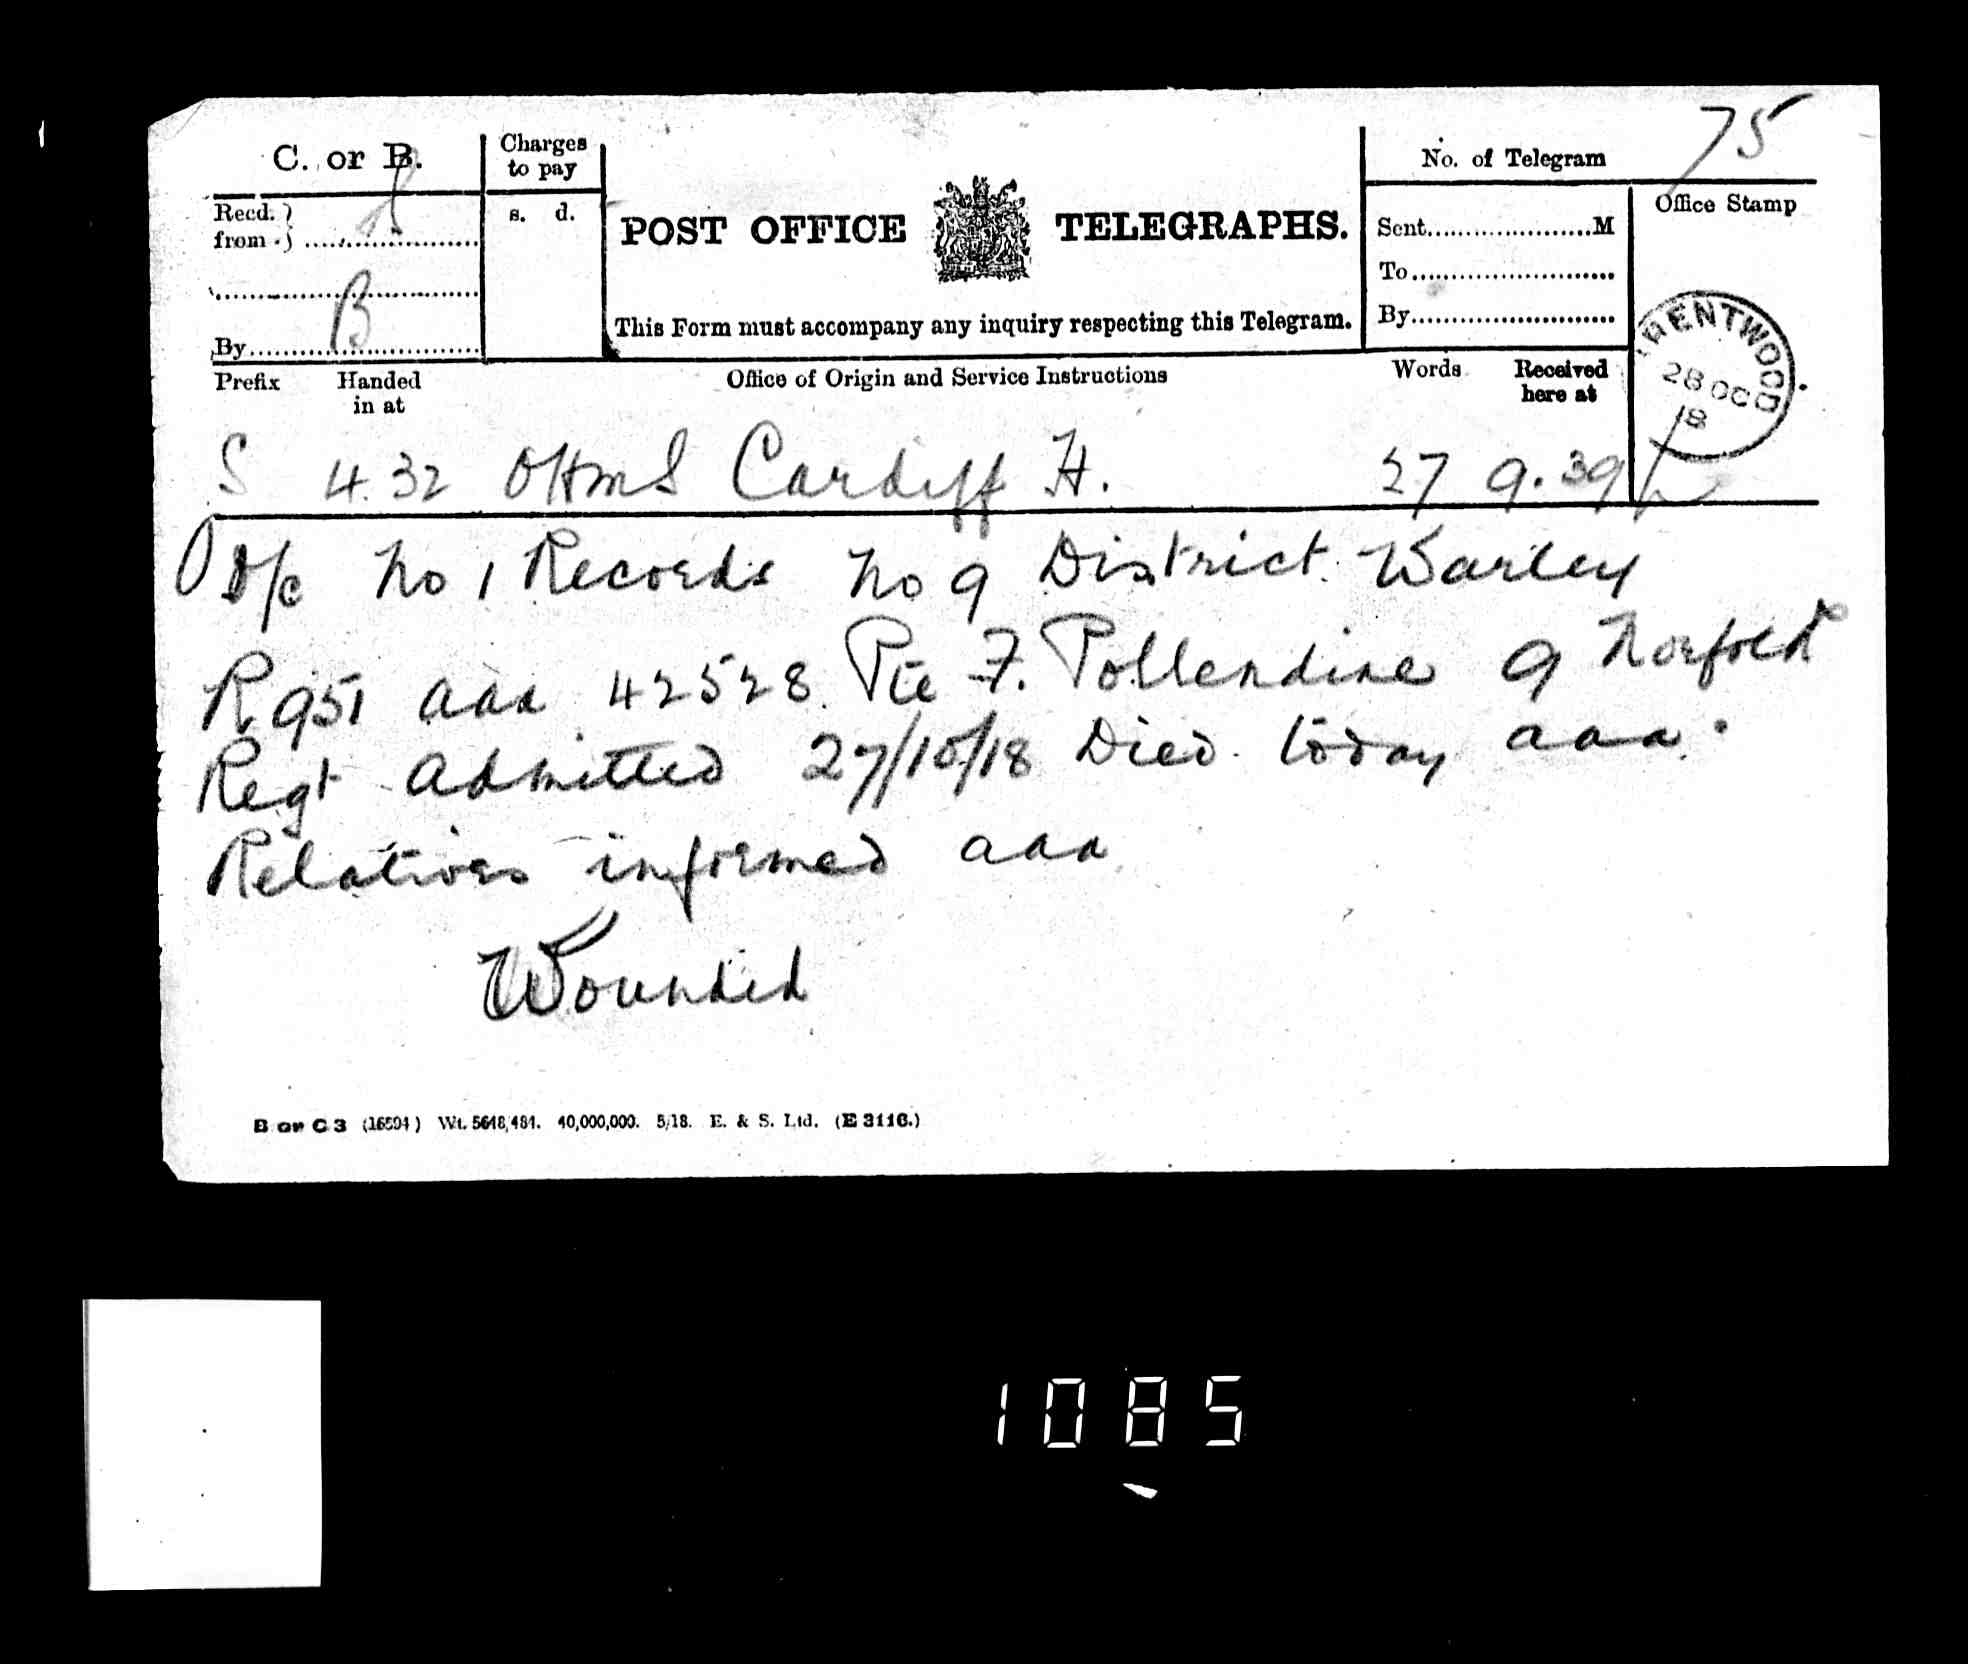 C. or B.
Charges
to pay
No. of Telegram 75
Recd.
from
s. d.
POST OFFICE TELEGRAPHS.
Sent....................M
Office Stamp
To........................
B
This Form must accompany any inquiry respecting this Telegram.
By........................
By........................
BRENTWOOD
28 OC
18
Prefix Handed
in at
Office of Origin and Service Instructions
Words Received
here at
S 4.32 OHMS Cardiff H. 27 9.39
O/c No 1 Records No 9 District Warley
R951 aaa 42528 Pte F. Pollendine 9 Norfolk
Regt Admitted 27/10/18 Died today aaa
Relatives informed aaa
Wounded
B or C 3 (16594) Wt. 5648/484. 40,000,000. 5/18. E. & S. Ltd. (E 3116.)
1085